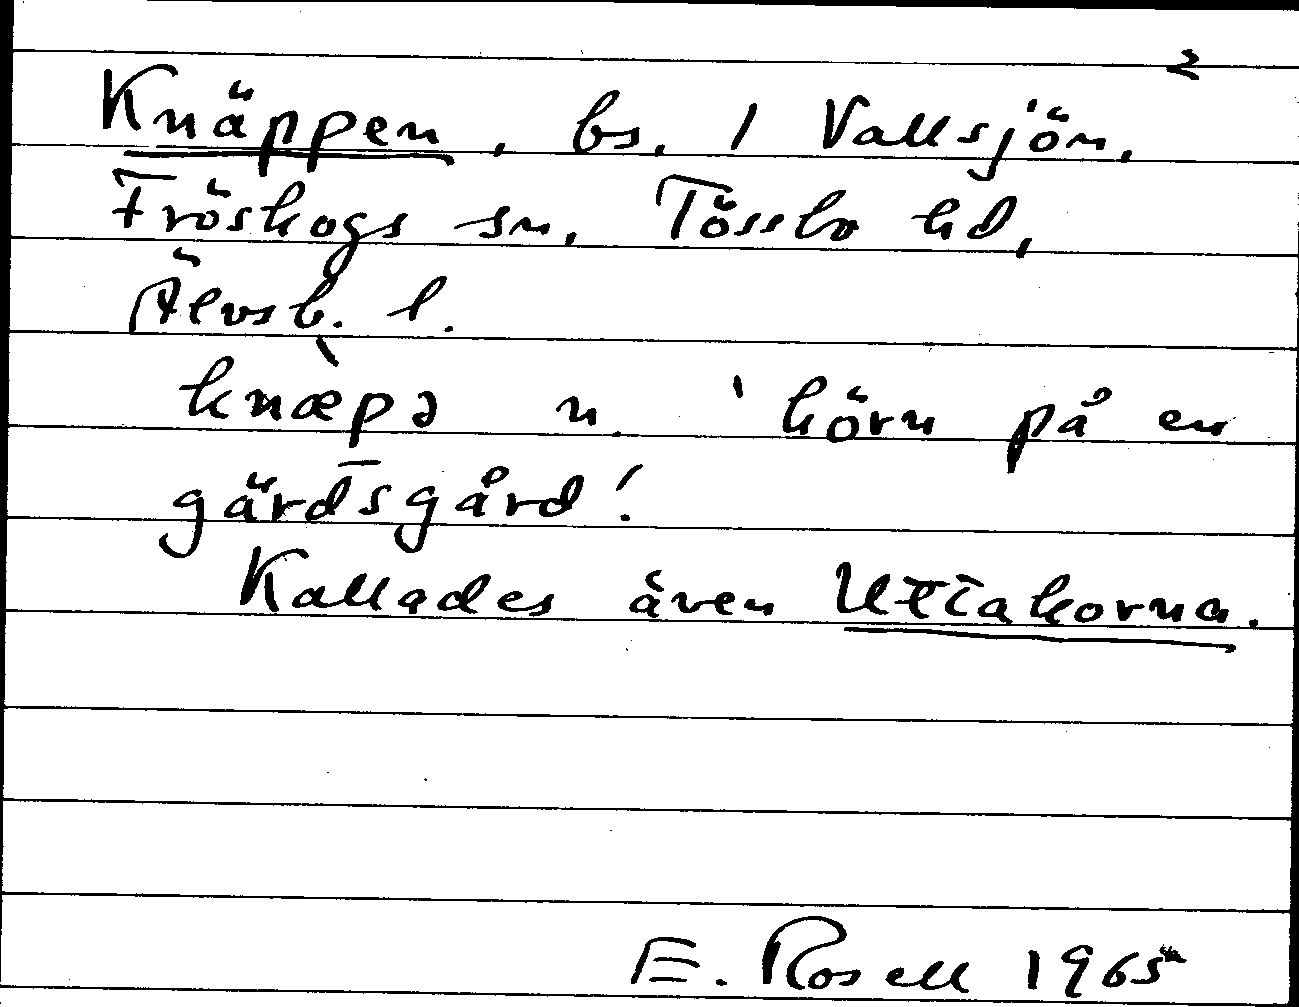 2
Knäppen, bs. / Vallsjön,
Fröskogs sn, Tössbo hd,
Älvsb. l.
knæ̀pə n. 'hörn på en
gärdsgård'.
Kallades även Uttakorna.
E. Rosell 1965